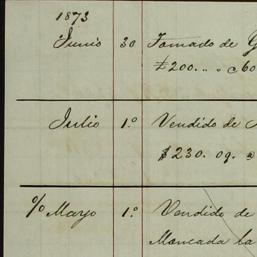 1873
Junio 30 Tomado de G
£200.. „ a 60
Julio 1.º Vendido de
$230.09. a
º/o Mayo 1.º Vendido de
Moncada la